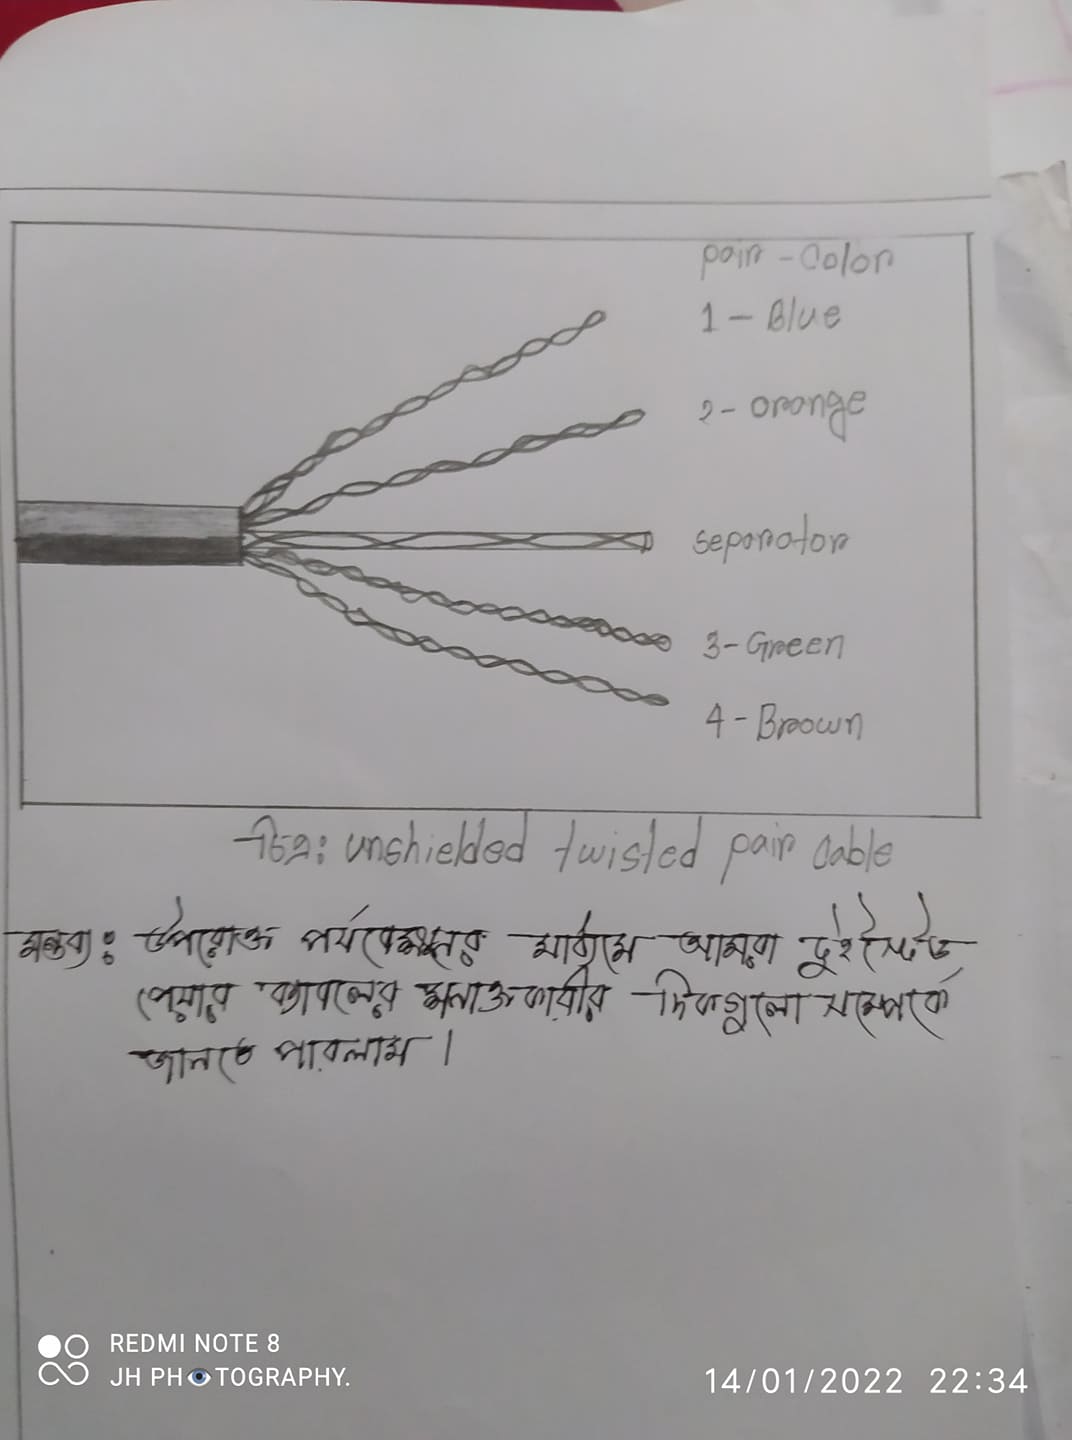 pair - Color
1 - Blue
2 - orange
separator
3 - Green
4 - Brown
চিত্র: unshielded twisted pair cable
মন্তব্য: উপরোক্ত পর্যবেক্ষনের মাধ্যমে আমরা টুইস্টেড
পেয়ার ক্যাবলের শনাক্তকারীর দিকগুলো সম্পর্কে
জানতে পারলাম।
REDMI NOTE 8
JH PHOTOGRAPHY.
14/01/2022 22:34